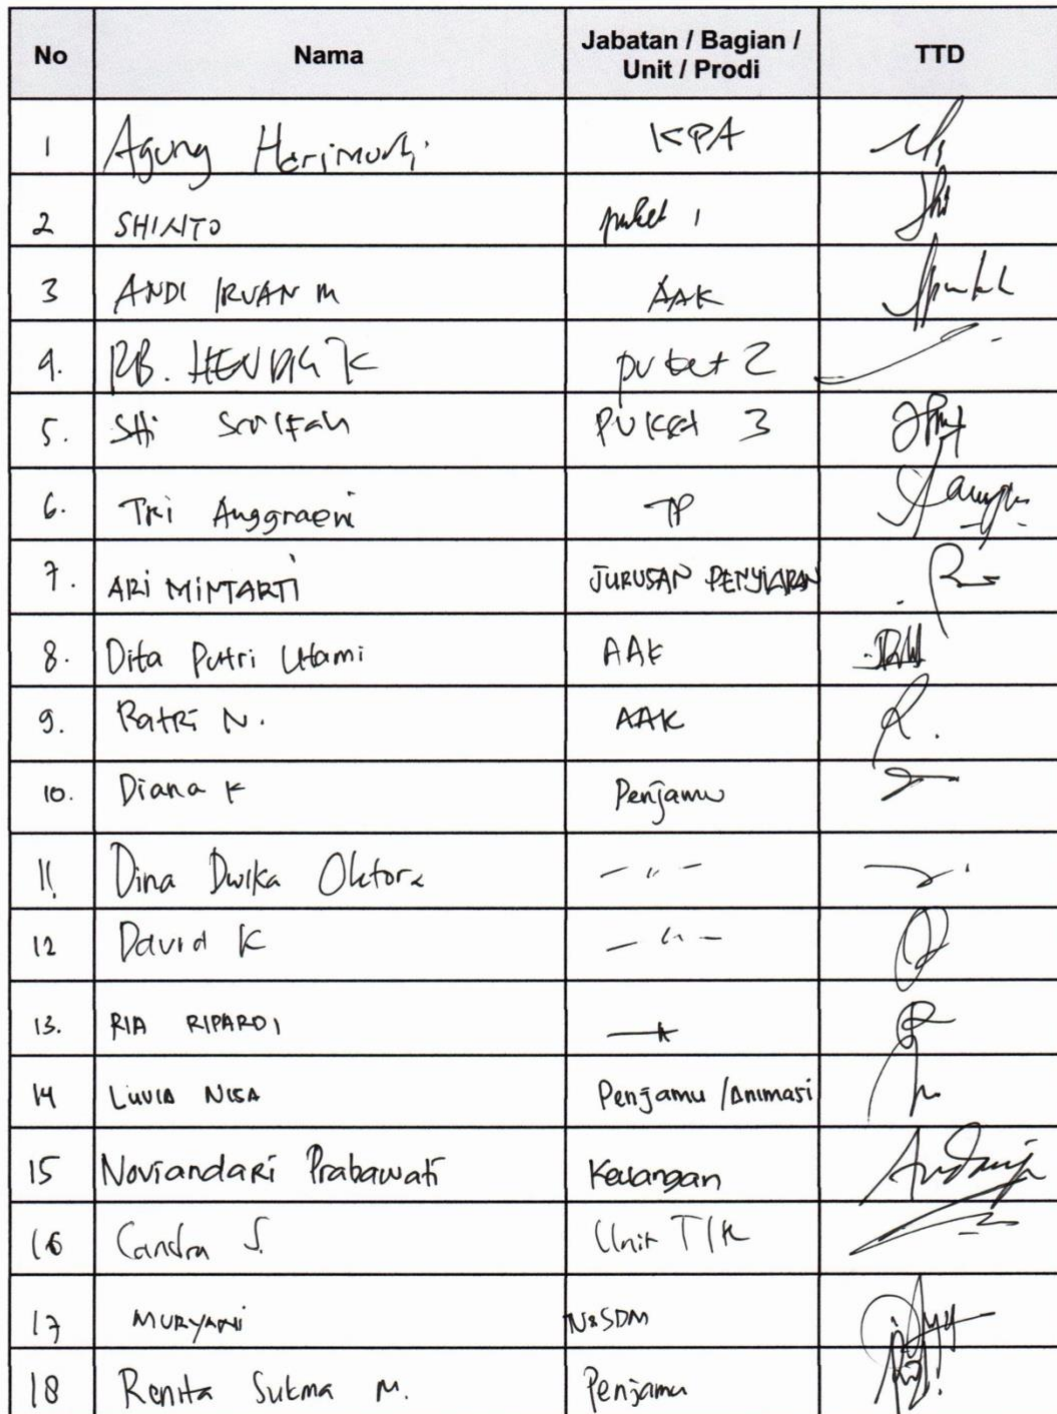 No Nama Jabatan / Bagian / Unit / Prodi TTD
1 Agung Harimurti KPA
2 SHINTO puket 1
3 ANDI IRVAN M AAK
4. RB. HENDRA K puket 2
5. Siti puket 3
6. Tri Anggraeni TP
7. ARI MINTARTI JURUSAN PENYIARAN
8. Dita Putri Utami AAK
9. Ratri N. AAK
10. Diana K Penjamu
11. Dina Dwika Oktora - " -
12 David K - " -
13. RIA RIPARDI
14 LUVIA NISA Penjamu /Animasi
15 Noviandari Prabawati Keuangan
16 Candra S. Unit TIK
17 MURYANI
18 Renita Sukma M. Penjamu